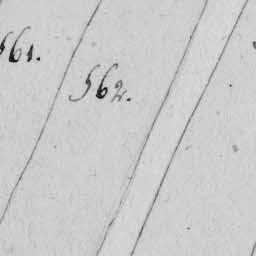 561.
562.